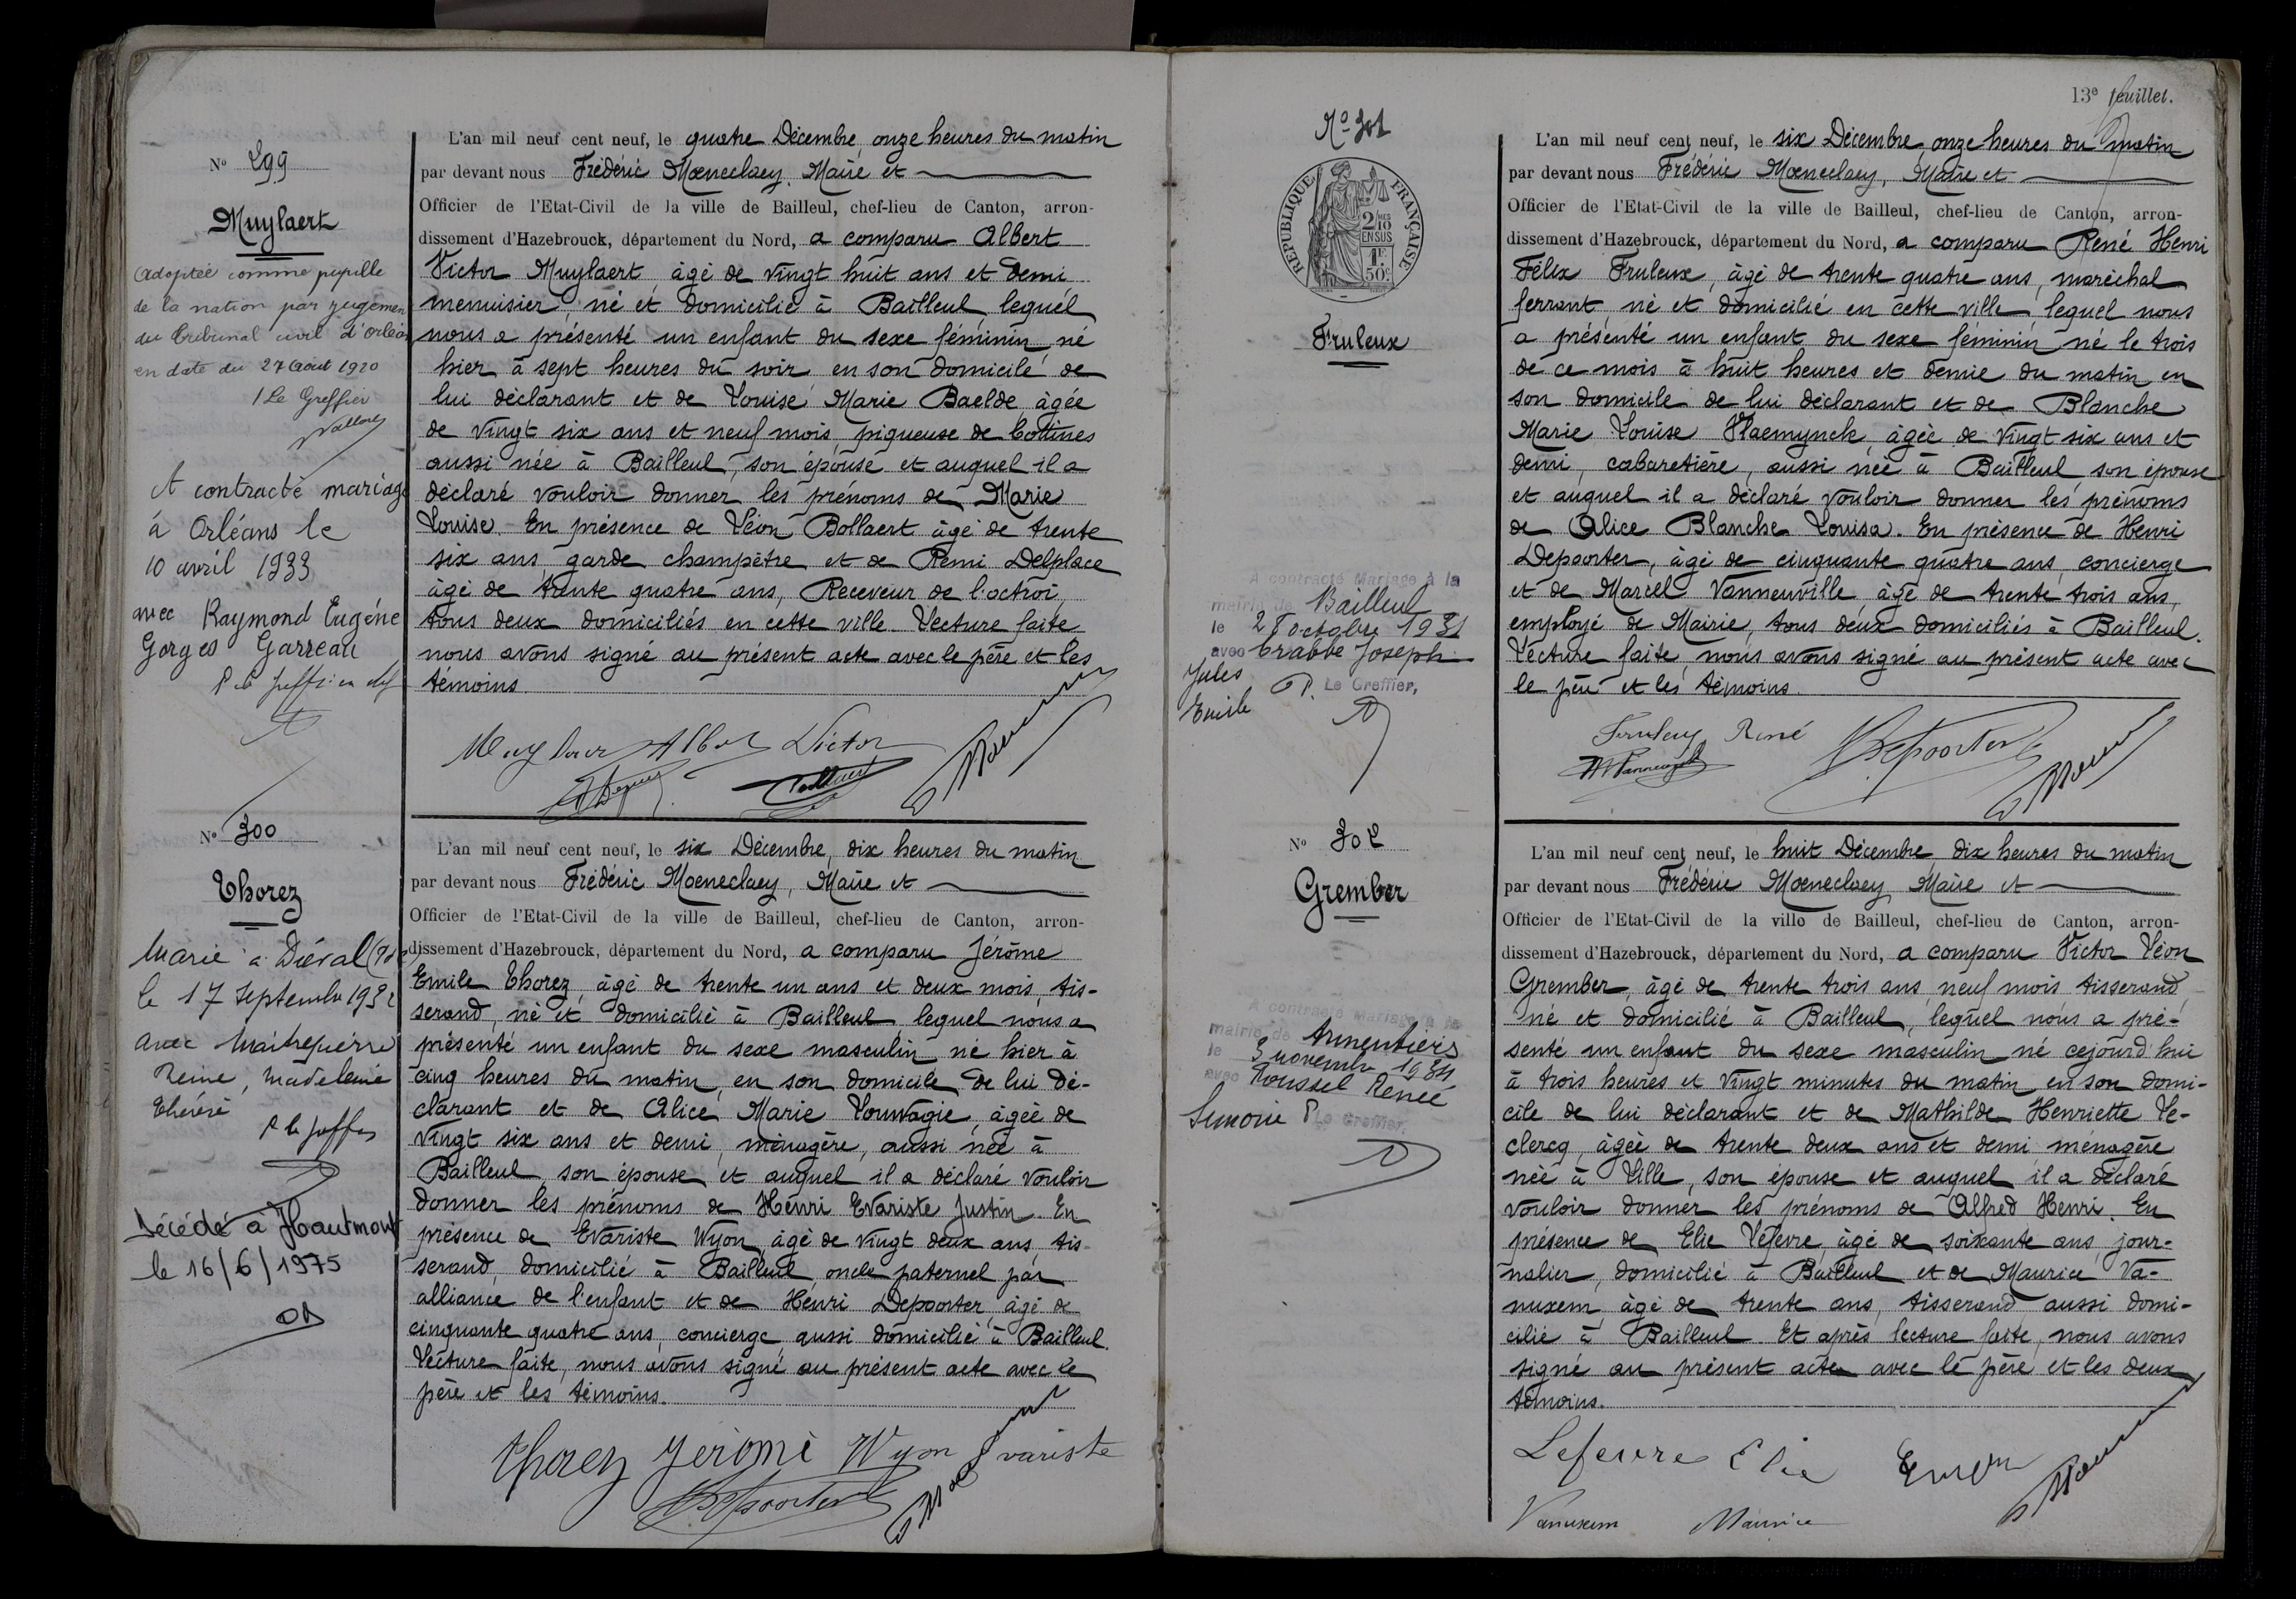 N° 299
Muylaert
Adoptée comme pupille
de la nation par jugement
du Tribunal civil d'Orléans
en date du 27 Août 1920
Le Greffier
A contracté mariage
à Orléans le
10 avril 1933
avec Raymond Eugène
Gorges Garreau
L'an mil neuf cent neuf, le quatre Décembre, onze heures du matin
par devant nous Frédéric Moeneclaey, Maire et
Officier de l'Etat-Civil de la ville de Bailleul, chef-lieu de Canton, arron-
dissement d'Hazebrouck, département du Nord, a comparu Albert
Victor Muylaert, âgé de vingt huit ans et demi,
menuisier, né et domicilié à Bailleul, lequel
nous a présenté un enfant du sexe féminin, né
hier à sept heures du soir, en son domicile de
lui déclarant et de Louise Marie Baelde, âgée
de vingt six ans et neuf mois, piqueuse de bottines
aussi née à Bailleul, son épouse et auquel il a
déclaré vouloir donner les prénoms de Marie
Louise. En présence de Léon Bollaert âgé de trente
six ans garde champêtre et de Rémi Delplace
âgé de trente quatre ans, Receveur de l'octroi,
tous deux domiciliés en cette ville. Lecture faite
nous avons signé au présent acte avec le père et les
témoins.
Muylaert Albert Victor
N° 300
Thorez
Marié à Diéval
le 17 septembre 1932
avec Maitrepierre
Reine, Madeleine
Thérèse
Décédé à Hautmont
le 16/6/1975
L'an mil neuf cent neuf, le six Décembre, dix heures du matin
par devant nous Frédéric Moeneclaey, Maire et
Officier de l'Etat-Civil de la ville de Bailleul, chef-lieu de Canton, arron-
dissement d'Hazebrouck, département du Nord, a comparu Jérôme
Emile Thorez, âgé de trente un ans et deux mois, tis-
serand, né et domicilié à Bailleul, lequel nous a
présenté un enfant du sexe masculin, né hier à
cinq heures du matin, en son domicile de lui dé-
clarant et de Alice Marie Louwagie, âgée de
vingt six ans et demi, ménagère, aussi née à
Bailleul, son épouse et auquel il a déclaré vouloir
donner les prénoms de Henri Evariste Justin. En
présence de Evariste Wyon, âgé de vingt deux ans, tis-
serand, domicilié à Bailleul, oncle paternel par
alliance de l'enfant et de Henri Depoorter, âgé de
cinquante quatre ans, concierge, aussi domicilié à Bailleul.
Lecture faite, nous avons signé au présent acte avec le
père et les témoins.
Thorez Jérome Wyon Evariste
HDepoorter
13e feuillet.
No 301
REPUBLIQUE FRANÇAISE
2/10MES
EN SUS
1F
50c
Fruleux
A contracté Mariage à la
mairie de Bailleul
le 28 octobre 1931
avec Crabbe Joseph
Jules
Emile
P. Le Greffier,
L'an mil neuf cent neuf, le six Décembre, onze heures du matin
par devant nous Frédéric Moeneclaey, Maire et
Officier de l'Etat-Civil de la ville de Bailleul, chef-lieu de Canton, arron-
dissement d'Hazebrouck, département du Nord, a comparu René Henri
Félix Fruleux, âgé de trente quatre ans, maréchal
ferrant, né et domicilié en cette ville, lequel nous
a présenté un enfant du sexe féminin né le trois
de ce mois à huit heures et demie du matin, en
son domicile de lui déclarant et de Blanche
Marie Louise Vlaemynck, âgée de vingt six ans et
demi, cabaretière, aussi née à Bailleul, son épouse
et auquel il a déclaré vouloir donner les prénoms
de Alice Blanche Louisa. En présence de Henri
Depoorter, âgé de cinquante quatre ans, concierge
et de Marcel Vanneuville, âgé de trente trois ans,
employé de Mairie, tous deux domiciliés à Bailleul.
Lecture faite, nous avons signé au présent acte avec
le père et les témoins.
Fruleux René
HDepoorter
N° 302
Grember
A contracté Mariage à la
mairie de Armentières
le 3 novembre 1934
avec Roussel Renée
Simone P. Le Greffier,
L'an mil neuf cent neuf, le huit Décembre, dix heures du matin
par devant nous Frédéric Moeneclaey, Maire et
Officier de l'Etat-Civil de la ville de Bailleul, chef-lieu de Canton, arron-
dissement d'Hazebrouck, département du Nord, a comparu Victor Léon
Grember, âgé de trente trois ans, neuf mois tisserand,
né et domicilié à Bailleul, lequel nous a pré-
senté un enfant du sexe masculin né cejourd'hui
à trois heures et vingt minutes du matin en son domi-
cile de lui déclarant et de Mathilde Henriette Le-
clercq, âgée de trente deux ans et demi ménagère
née à Lille, son épouse et auquel il a déclaré
vouloir donner les prénoms de Alfred Henri. En
présence de Elie Lefevre, âgé de soixante ans, jour-
nalier, domicilié à Bailleul et de Maurice Va-
nuxem, âgé de trente ans, tisserand aussi domi-
cilié à Bailleul. Et après lecture faite, nous avons
signé au présent acte avec le père et les deux
témoins.
Lefevre Elie
Vanuxem Maurice